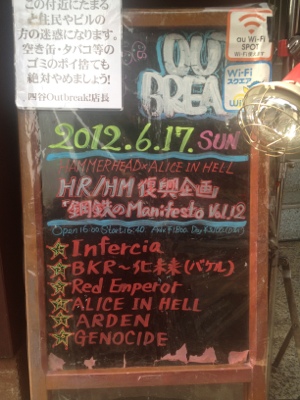 この付近にたまる
と住民やビルの
方の迷惑になります。
空き缶・タバコ等の
ゴミのポイ捨ても
絶対やめましょう!
四谷Outbreak!店長
au Wi-Fi
SPOT
Wi-Fi
スクエア
OUT
BREAK
2012.6.17. SUN
HAMMERHEAD×ALICE IN HELL
HR/HM 復興企画
「鋼鉄のManifesto Vol.12
Open 16:00 Start 16:40
☆Infercia
☆BKR~化未来(バケル)
☆Red Emperor
☆ALICE IN HELL
☆ARDEN
☆GENOCIDE